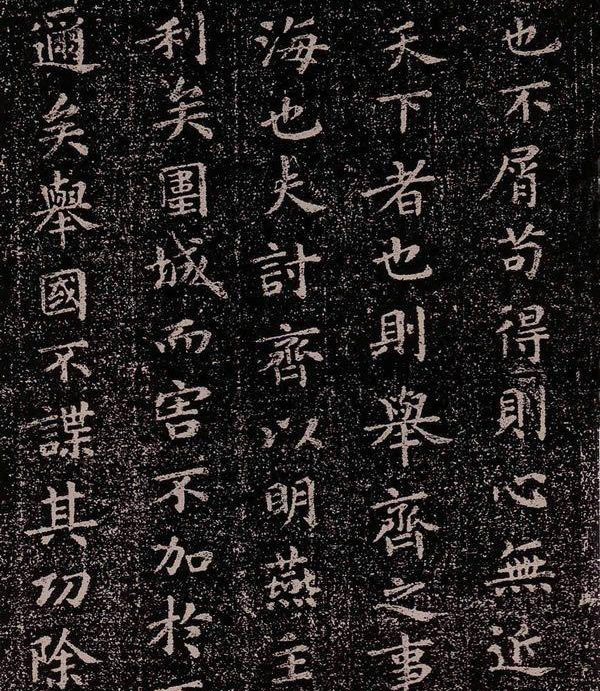 也不屑苟得則心無近
天下者也則舉齊之事
海也夫討齊以明燕主
利矣圍城而害不加於
邇矣舉國不謀其功除